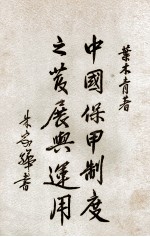 葉木青著
中國保甲制度
之發展與運用
朱家驊署